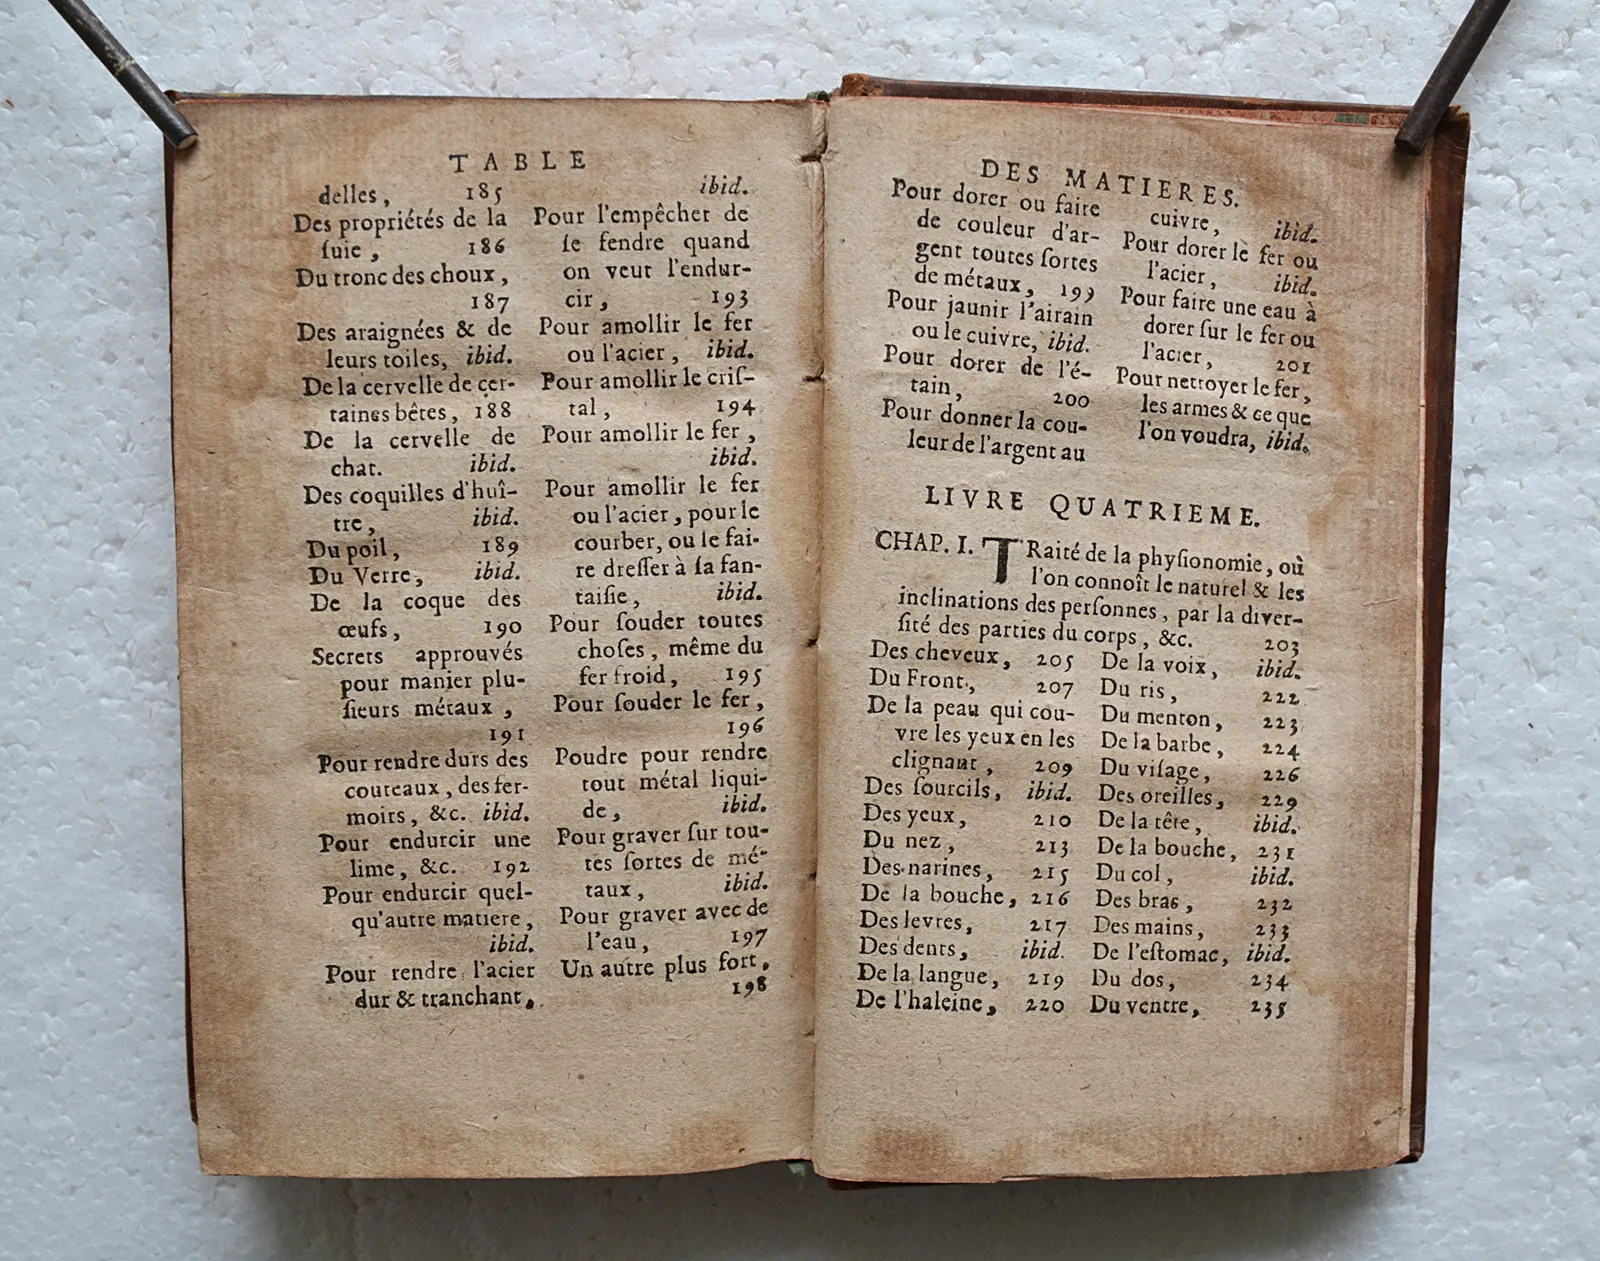 TABLE
delles, 185
Des propriétés de la
ſuie, 186
Du tronc des choux,
187
Des araignées & de
leurs toiles, ibid.
De la cervelle de cer-
taines bêtes, 188
De la cervelle de
chat. ibid.
Des coquilles d'huî-
tre, ibid.
Du poil, 189
Du Verre, ibid.
De la coque des
œufs, 190
Secrets approuvés
pour manier plu-
ſieurs métaux,
191
Pour rendre durs des
couteaux, des fer-
moirs, &c. ibid.
Pour endurcir une
lime, &c. 192
Pour endurcir quel-
qu'autre matiere,
ibid.
Pour rendre l'acier
dur & tranchant,
ibid.
Pour l'empêcher de
ſe fendre quand
on veut l'endur-
cir, 193
Pour amollir le fer
ou l'acier, ibid.
Pour amollir le criſ-
tal, 194
Pour amollir le fer,
ibid.
Pour amollir le fer
ou l'acier, pour le
courber, ou le fai-
re dreſſer à ſa fan-
taiſie, ibid.
Pour ſouder toutes
choſes, même du
fer froid, 195
Pour ſouder le fer,
196
Poudre pour rendre
tout métal liqui-
de, ibid.
Pour graver ſur tou-
tes ſortes de mé-
taux, ibid.
Pour graver avec de
l'eau, 197
Un autre plus fort,
198
DES MATIERES.
Pour dorer ou faire
de couleur d'ar-
gent toutes ſortes
de métaux, 199
Pour jaunir l'airain
ou le cuivre, ibid.
Pour dorer de l'é-
tain, 200
Pour donner la cou-
leur de l'argent au
cuivre, ibid.
Pour dorer le fer ou
l'acier, ibid.
Pour faire une eau à
dorer ſur le fer ou
l'acier, 201
Pour nettoyer le fer,
les armes & ce que
l'on voudra, ibid.
LIVRE QUATRIEME.
CHAP. I. TRaité de la phyſionomie, où
l'on connoît le naturel & les
inclinations des perſonnes, par la diver-
ſité des parties du corps, &c. 203
Des cheveux, 205
Du Front, 207
De la peau qui cou-
vre les yeux en les
clignant, 209
Des ſourcils, ibid.
Des yeux, 210
Du nez, 213
Des narines, 215
De la bouche, 216
Des levres, 217
Des dents, ibid.
De la langue, 219
De l'haleine, 220
De la voix, ibid.
Du ris, 222
Du menton, 223
De la barbe, 224
Du viſage, 226
Des oreilles, 229
De la tête, ibid.
De la bouche, 231
Du col, ibid.
Des bras, 232
Des mains, 233
De l'eſtomac, ibid.
Du dos, 234
Du ventre, 235